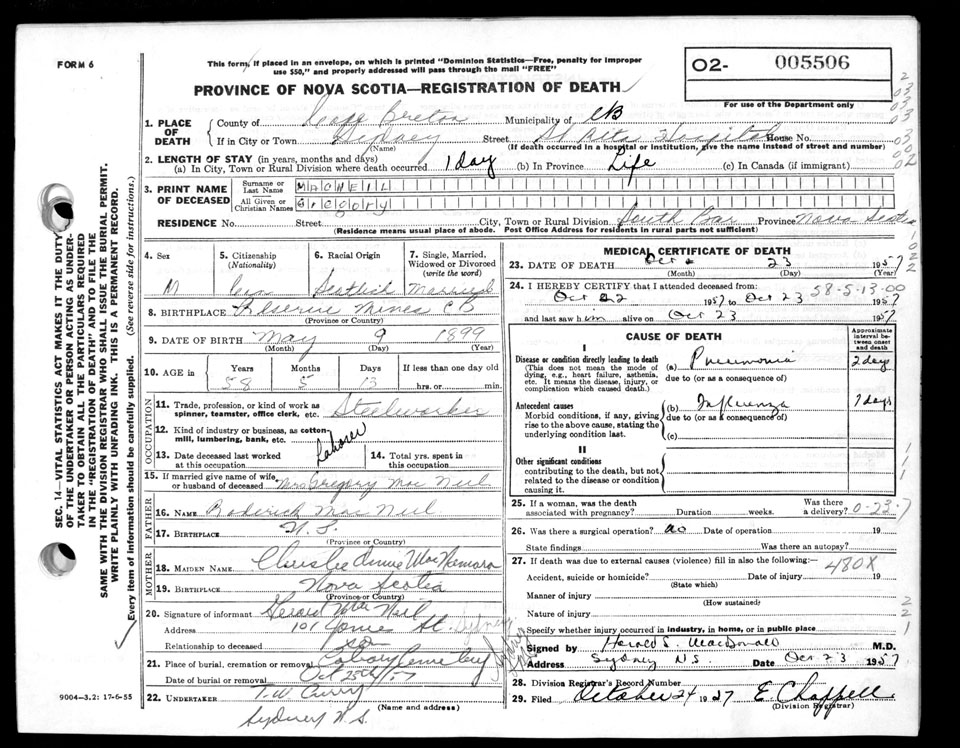 FORM 6
This form, if placed in an envelope, on which is printed "Dominion Statistics—Free, penalty for improper
use $50," and properly addressed will pass through the mail "FREE"
PROVINCE OF NOVA SCOTIA—REGISTRATION OF DEATH
02- 005506
For use of the Department only
1. PLACE OF DEATH County of Cape Breton Municipality of CB
If in City or Town Sydney Street St Rita Hospital House No.
(Name) (If death occurred in a hospital or institution, give the name instead of street and number)
2. LENGTH OF STAY (in years, months and days)
(a) In City, Town or Rural Division where death occurred 1 day (b) In Province Life (c) In Canada (if immigrant)
3. PRINT NAME OF DECEASED Surname or Last Name MACNEIL
All Given or Christian Names Gregory
RESIDENCE No. Street City, Town or Rural Division South Bar Province Nova Scotia
(Residence means usual place of abode. Post Office Address for residents in rural parts not sufficient)
4. Sex 5. Citizenship (Nationality) 6. Racial Origin 7. Single, Married, Widowed or Divorced (write the word)
M Can Scottish Married
8. BIRTHPLACE Reserve Mines CB
(Province or Country)
9. DATE OF BIRTH May 9 1899
(Month) (Day) (Year)
10. AGE in Years Months Days If less than one day old
58 5 13 hrs. or min.
OCCUPATION
11. Trade, profession, or kind of work as spinner, teamster, office clerk, etc. Steelworker
12. Kind of industry or business, as cotton mill, lumbering, bank, etc. Laborer
13. Date deceased last worked at this occupation 14. Total yrs. spent in this occupation
15. If married give name of wife or husband of deceased Mrs Gregory Mac Neil
FATHER
16. NAME Roderick Mac Neil
17. BIRTHPLACE N.S.
(Province or Country)
MOTHER
18. MAIDEN NAME Annie MacNamara
19. BIRTHPLACE Nova Scotia
(Province or Country)
20. Signature of informant Gerard MacNeil
Address 101 St. Sydney
Relationship to deceased son
21. Place of burial, cremation or removal Calvary Cemetery
Date of burial or removal Oct 25th/57
22. UNDERTAKER T.W. Curry
(Name and address)
Sydney N.S.
MEDICAL CERTIFICATE OF DEATH
23. DATE OF DEATH Oct 23 1957
(Month) (Day) (Year)
24. I HEREBY CERTIFY that I attended deceased from: 58-5-13-00
Oct 22 1957 to Oct 23 1957
and last saw him alive on Oct 23 1957
CAUSE OF DEATH
Approximate interval between onset and death
I
Disease or condition directly leading to death (a) Pneumonia 2 days
(This does not mean the mode of dying, e.g., heart failure, asthenia, etc. It means the disease, injury, or complication which caused death.)
due to (or as a consequence of)
Antecedent causes (b) Influenza 7 days
Morbid conditions, if any, giving rise to the above cause, stating the underlying condition last.
due to (or as a consequence of)
(c)
II
Other significant conditions
contributing to the death, but not
related to the disease or condition
causing it.
25. If a woman, was the death associated with pregnancy? Duration weeks. Was there a delivery? 0-23-7
26. Was there a surgical operation? no Date of operation 19
State findings Was there an autopsy?
27. If death was due to external causes (violence) fill in also the following:— 480X
Accident, suicide or homicide? Date of injury 19
(State which)
Manner of injury
(How sustained)
Nature of injury
Specify whether injury occurred in industry, in home, or in public place
Signed by Harold S. MacDonald M.D.
Address Sydney N.S. Date Oct 23 1957
28. Division Registrar's Record Number
29. Filed October 24 1927 E. Chappell
(Division Registrar)
SEC. 14—VITAL STATISTICS ACT MAKES IT THE DUTY
OF THE UNDERTAKER OR PERSON ACTING AS UNDER-
TAKER TO OBTAIN ALL THE PARTICULARS REQUIRED
IN THE "REGISTRATION OF DEATH" AND TO FILE THE
SAME WITH THE DIVISION REGISTRAR WHO SHALL ISSUE THE BURIAL PERMIT.
WRITE PLAINLY WITH UNFADING INK. THIS IS A PERMANENT RECORD.
Every item of information should be carefully supplied. (See reverse side for instructions.)
9004-3.2: 17-6-55